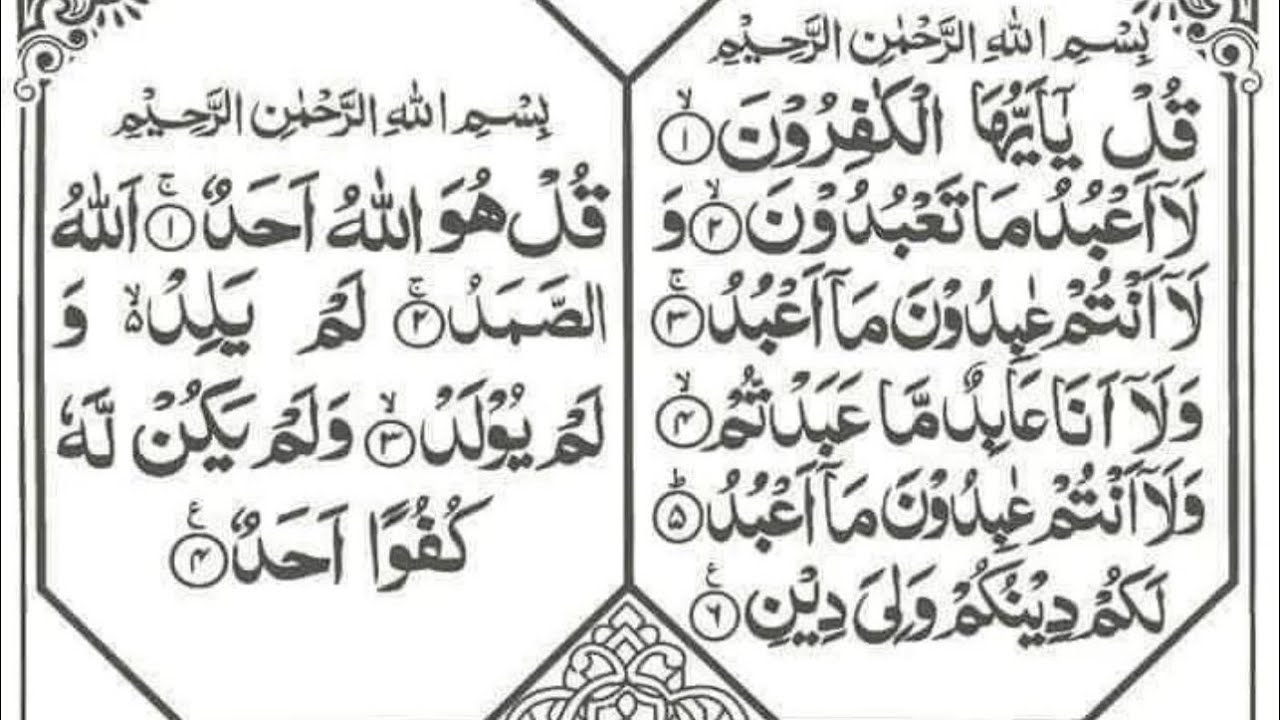 بِسْمِ اللهِ الرَّحْمٰنِ الرَّحِيْمِ
قُلْ يٰٓاَيُّهَا الْكٰفِرُوْنَ ۙ﴿۱﴾
لَاۤ اَعْبُدُ مَا تَعْبُدُوْنَ ۙ﴿۲﴾ وَ
لَاۤ اَنْتُمْ عٰبِدُوْنَ مَاۤ اَعْبُدُ ۚ﴿۳﴾
وَلَاۤ اَنَا عَابِدٌ مَّا عَبَدْتُّمْ ۙ﴿۴﴾
وَلَاۤ اَنْتُمْ عٰبِدُوْنَ مَاۤ اَعْبُدُ ؕ﴿۵﴾
لَكُمْ دِيْنُكُمْ وَلِيَ دِيْنِ ﴿۶﴾ ع
بِسْمِ اللهِ الرَّحْمٰنِ الرَّحِيْمِ
قُلْ هُوَ اللهُ اَحَدٌ ۚ﴿۱﴾ اَللهُ
الصَّمَدُ ۚ﴿۲﴾ لَمْ يَلِدْ ۙ۵ وَ
لَمْ يُوْلَدْ ۙ﴿۳﴾ وَلَمْ يَكُنْ لَّهٗ
كُفُوًا اَحَدٌ ﴿۴﴾ ع